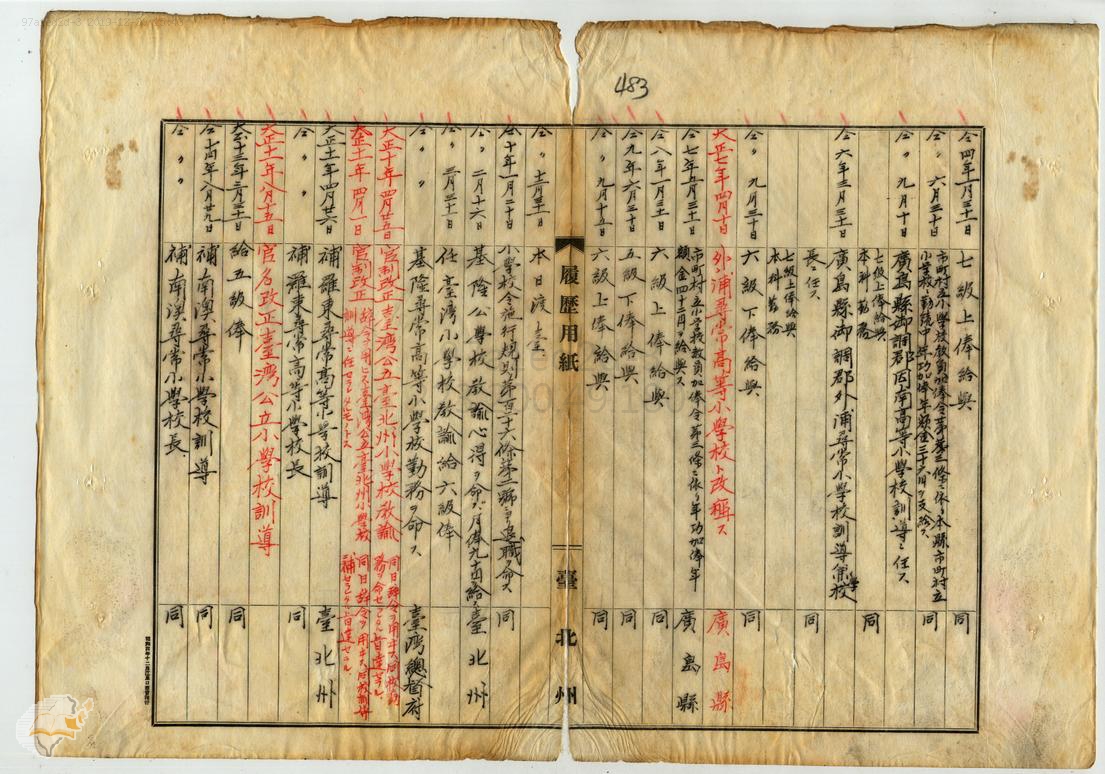 483
仝 四年三月三十一日 七級上俸給與 同
仝 〃 六月三十日 市町村立小學校教員加俸令第二條ニ依リ本縣市町村立
小學校勤續 年功加俸年額金三十六円ヲ支給ス 同
仝 〃 九月十日 廣島縣御調郡因南高等小學校訓導ニ任ス 同
七級上俸給與
本科勤務 同
仝 六年三月三十一日 廣島縣御調郡外浦尋常小學校訓導兼校
長ニ任ス 同
七級上俸給與
本科勤務
仝 〃 九月三十日 六級下俸給與 同
大正七年四月十日 外浦尋常高等小學校ト改稱ス 廣島縣
仝 七年五月三十一日 市町村立小學校教員加俸令第二條ニ依リ年功加俸年
額金四十二円ヲ給與ス 廣島縣
仝 八年一月三十一日 六級上俸給與 同
仝 九年六月三十日 五級下俸給與 同
仝 〃 九月十五日 六級上俸給與 同
履歷用紙 臺北州
仝 〃 十二月三十一日 本日渡臺
仝 十年一月二十日 小學校令施行規則第百二十六條第一號ニヨリ退職ヲ命ス 同
仝 〃 二月十六日 基隆公學校教諭心得ヲ命ス月俸九十五円給ス 臺北州
仝 〃 三月三十一日 任臺灣小學校教諭給六級俸
仝 〃 〃 基隆尋常高等小學校勤務ヲ命ス 臺灣總督府
大正十年四月廿五日 官制改正臺灣公立臺北州小學校教諭 同日辭令ヲ用ヰス同校勤
務ヲ命セラレタル旨達セラル
大正十一年四月一日 官制改正 辭令ヲ用ヒス臺灣公立臺北州小學校
訓導ニ任セラレタルモノトス 同日辭令ヲ用ヰス同校訓導ニ
補セラレタル旨達セラル
大正十一年四月廿六日 補羅東尋常高等小學校訓導 臺北州
仝 〃 〃 補羅東尋常高等小學校長 同
大正十一年八月十五日 官名改正臺灣公立小學校訓導
大正十三年三月三十一日 給五級俸 同
仝 十四年八月廿九日 補南澳尋常小學校訓導 同
仝 〃 〃 補南澳尋常小學校長 同